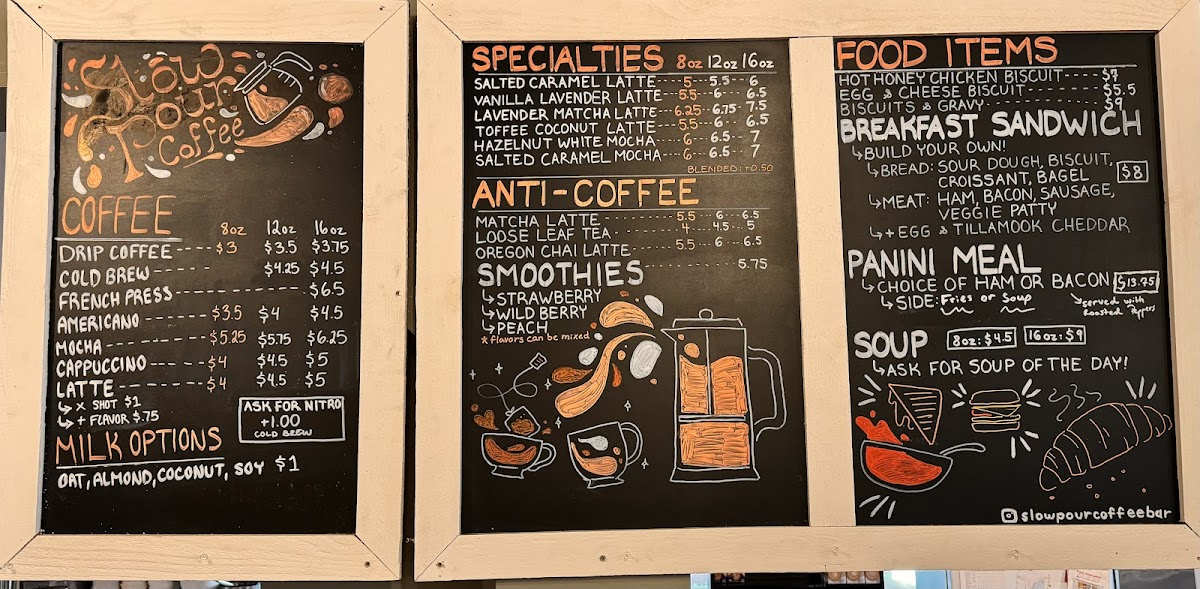 Slow
Pour
Coffee
COFFEE 8oz 12oz 16oz
DRIP COFFEE $3 $3.5 $3.75
COLD BREW $4.25 $4.5
FRENCH PRESS $6.5
AMERICANO $3.5 $4 $4.5
MOCHA $5.25 $5.75 $6.25
CAPPUCCINO $4 $4.5 $5
LATTE $4 $4.5 $5
↳ X SHOT $1
↳ + FLAVOR $.75
ASK FOR NITRO
+1.00
COLD BREW
MILK OPTIONS
OAT, ALMOND, COCONUT, SOY $1
SPECIALTIES 8oz 12oz 16oz
SALTED CARAMEL LATTE 5 5.5 6
VANILLA LAVENDER LATTE 5.5 6 6.5
LAVENDER MATCHA LATTE 6.25 6.75 7.5
TOFFEE COCONUT LATTE 5.5 6 6.5
HAZELNUT WHITE MOCHA 6 6.5 7
SALTED CARAMEL MOCHA 6 6.5 7
BLENDED: +0.50
ANTI-COFFEE
MATCHA LATTE 5.5 6 6.5
LOOSE LEAF TEA 4 4.5 5
OREGON CHAI LATTE 5.5 6 6.5
SMOOTHIES 5.75
↳ STRAWBERRY
↳ WILD BERRY
↳ PEACH
* flavors can be mixed
FOOD ITEMS
HOT HONEY CHICKEN BISCUIT $7
EGG & CHEESE BISCUIT $5.5
BISCUITS & GRAVY $9
BREAKFAST SANDWICH
↳ BUILD YOUR OWN!
↳ BREAD: SOUR DOUGH, BISCUIT,
CROISSANT, BAGEL $8
↳ MEAT: HAM, BACON, SAUSAGE,
VEGGIE PATTY
↳ + EGG & TILLAMOOK CHEDDAR
PANINI MEAL
↳ CHOICE OF HAM OR BACON $13.75
↳ SIDE: Fries or Soup
served with
Roasted Peppers
SOUP 8oz: $4.5 16oz: $9
↳ ASK FOR SOUP OF THE DAY!
slowpourcoffeebar